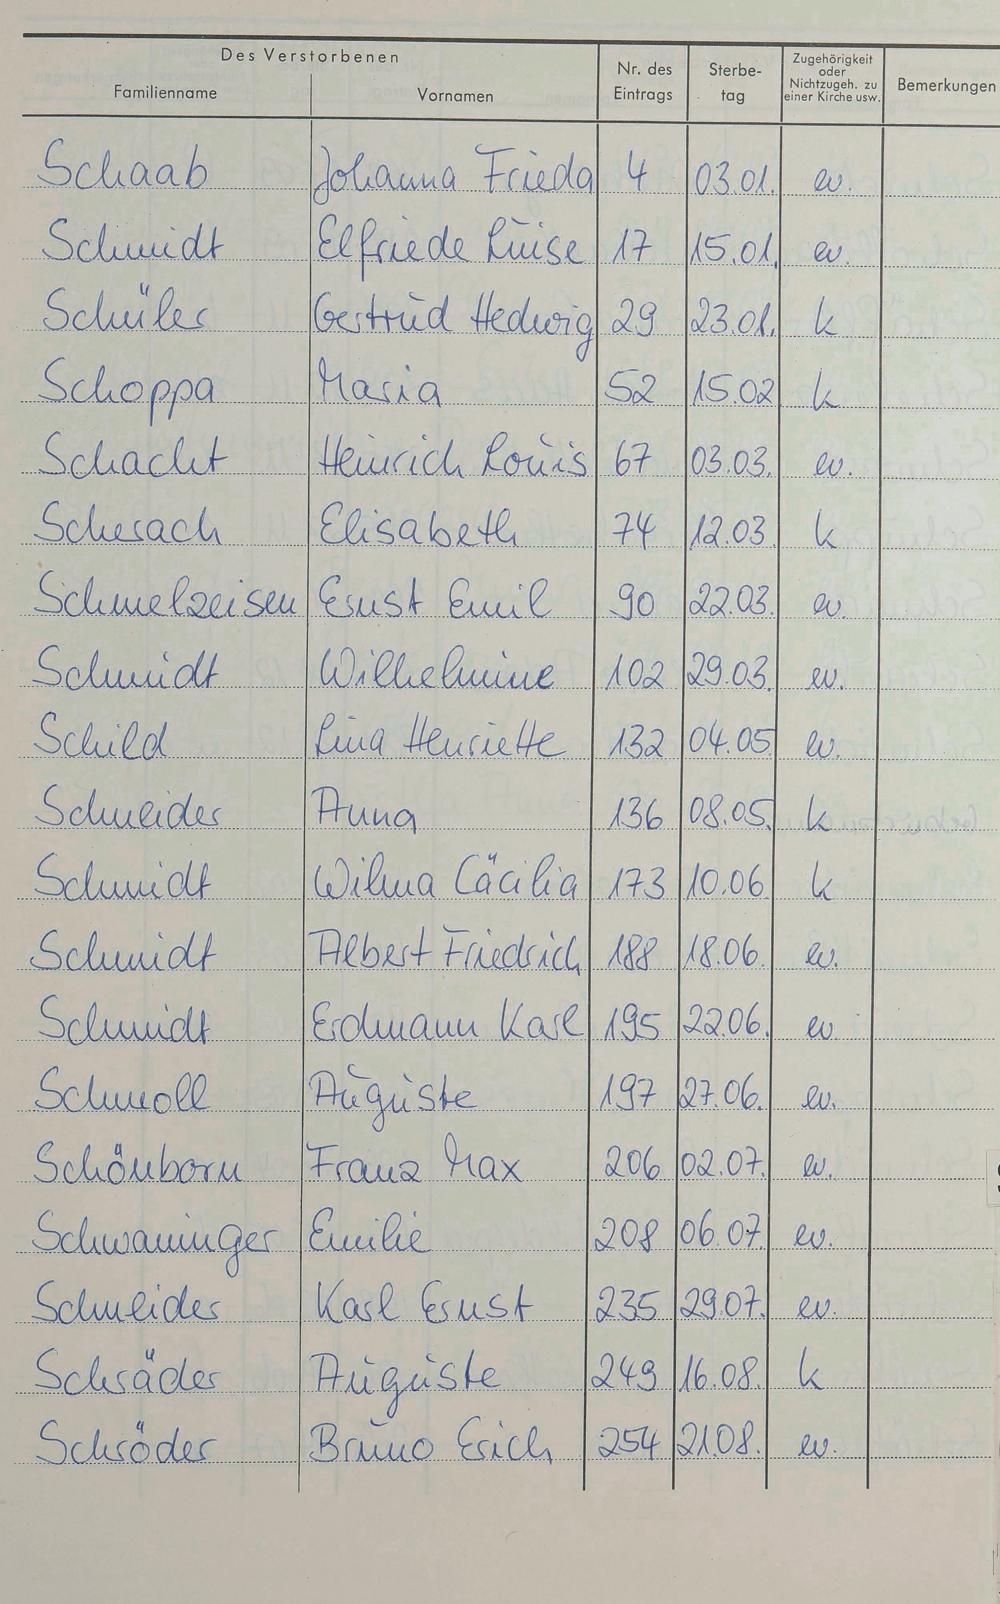 Des Verstorbenen
Familienname Vornamen Nr. des Eintrags Sterbe-tag Zugehörigkeit oder Nichtzugeh. zu einer Kirche usw. Bemerkungen
Schaab Johanna Frieda 4 03.01. ev.
Schmidt Elfriede Luise 17 15.01. ev.
Schüler Gertrud Hedwig 29 23.01. k
Schoppa Maria 52 15.02 k
Schacht Heinrich Louis 67 03.03. ev.
Scherach Elisabeth 74 12.03 k
Schmelzeisen Ernst Emil 90 22.03. ev.
Schmidt Wilhelmine 102 29.03. ev.
Schild Lina Henriette 132 04.05 ev.
Schneider Anna 136 08.05. k
Schmidt Wilma Cäcilia 173 10.06. k
Schmidt Albert Friedrich 188 18.06. ev.
Schmidt Erdmann Karl 195 22.06. ev
Schmoll Auguste 197 27.06. ev.
Schönborn Franz Max 206 02.07. ev.
Schwaninger Emilie 208 06.07. ev.
Schneider Karl Ernst 235 29.07. ev.
Schräder Auguste 249 16.08. k
Schröder Bruno Erich 254 21.08. ev.